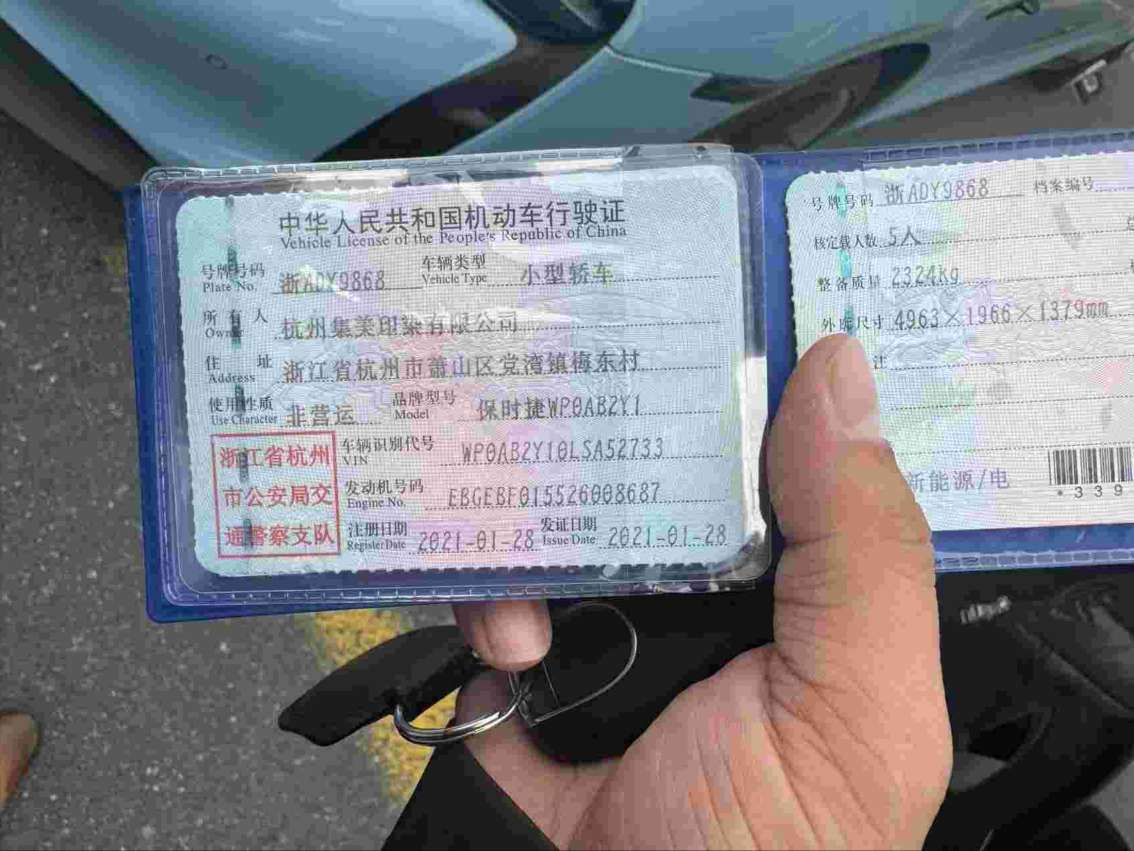 中华人民共和国机动车行驶证
Vehicle License of the People's Republic of China
号牌号码 浙ADY9868 车辆类型 小型轿车
Plate No. Vehicle Type
所有人 杭州集美印染有限公司
Owner
住址 浙江省杭州市萧山区党湾镇梅东村
Address
使用性质 非营运 品牌型号 保时捷WP0AB2Y1
Use Character Model
浙江省杭州
市公安局交
通警察支队
车辆识别代号 WP0AB2Y10LSA52733
VIN
发动机号码 EBGEBF015526008687
Engine No.
注册日期 2021-01-28 发证日期 2021-01-28
Register Date Issue Date
号牌号码 浙ADY9868 档案编号
核定载人数 5人
整备质量 2324kg
外廓尺寸 4963×1966×1379mm
注
新能源/电
*339